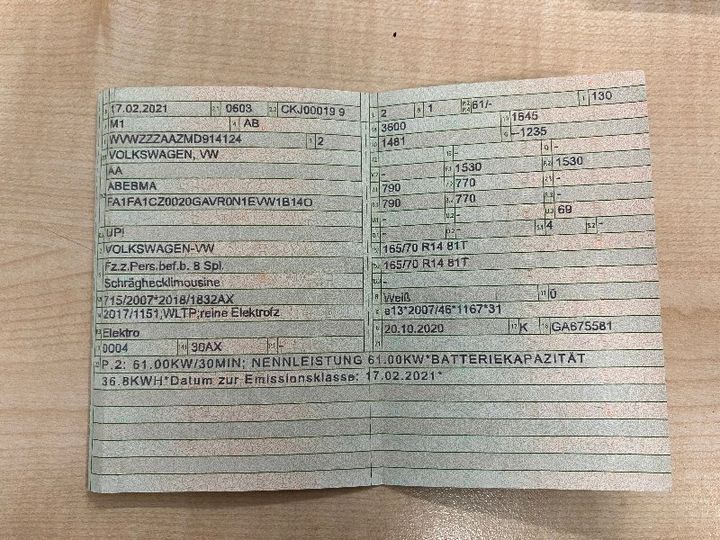 17.02.2021 2.1 0603 2.2 CKJ00019 9
M1 4 AB
WVWZZZAAZMD914124 3 2
VOLKSWAGEN, VW
AA
ABEBMA
FA1FA1CZ0020GAVR0N1EVW1B14O
UP!
VOLKSWAGEN-VW
Fz.z.Pers.bef.b. 8 Spl.
Schräghecklimousine
715/2007*2018/1832AX
2017/1151;WLTP;reine Elektrofz
Elektro
0004 30AX -
2 1 61/- 130
3600 1645
1481 -1235
- -
- 1530 1530
790 770 -
790 770 -
- - 69
- - 4 -
165/70 R14 81T
165/70 R14 81T
Weiß 0
e13*2007/46*1167*31
20.10.2020 K GA675581
P.2: 61.00KW/30MIN; NENNLEISTUNG 61.00KW*BATTERIEKAPAZITÄT
36.8KWH*Datum zur Emissionsklasse: 17.02.2021*